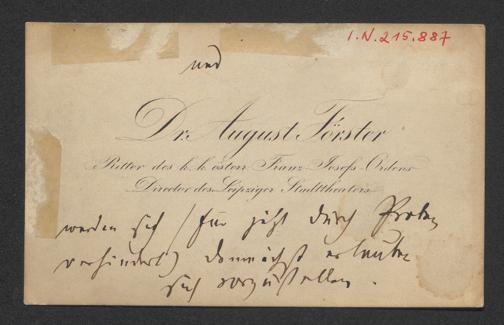 I.N.215.887
und
Dr. August Förster
Ritter des k. k. österr. Franz-Josefs-Ordens
Director des Leipziger Stadttheaters
werden sich (für jetzt durch Proben
verhindert) demnächst erlauben
sich vorzustellen.